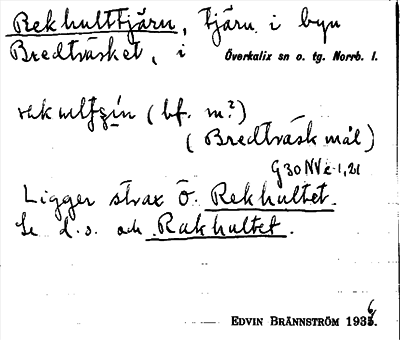 Rekhulttjärn, tjärn i byn
Bredträsket, i Överkalix sn o. tg. Norrb. l.
(bf. m?)
(Bredträskmål)
G30NVc1,21
Ligger strax Ö. Rekhultet.
Se d.o. och Rakhultet.
EDVIN BRÄNNSTRÖM 1936.